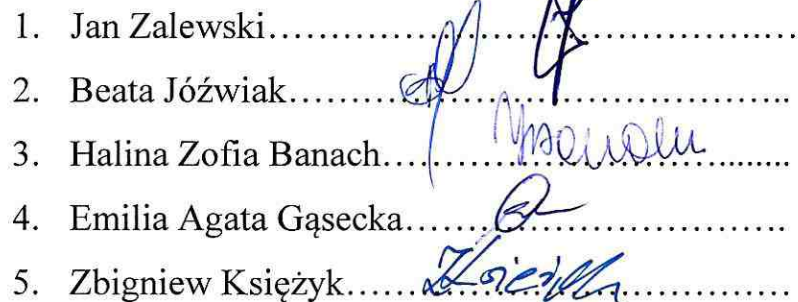 1. Jan Zalewski……………………………………
2. Beata Jóźwiak……………………………………..
3. Halina Zofia Banach…………………………........
4. Emilia Agata Gąsecka……………………………….
5. Zbigniew Księżyk…………………………………